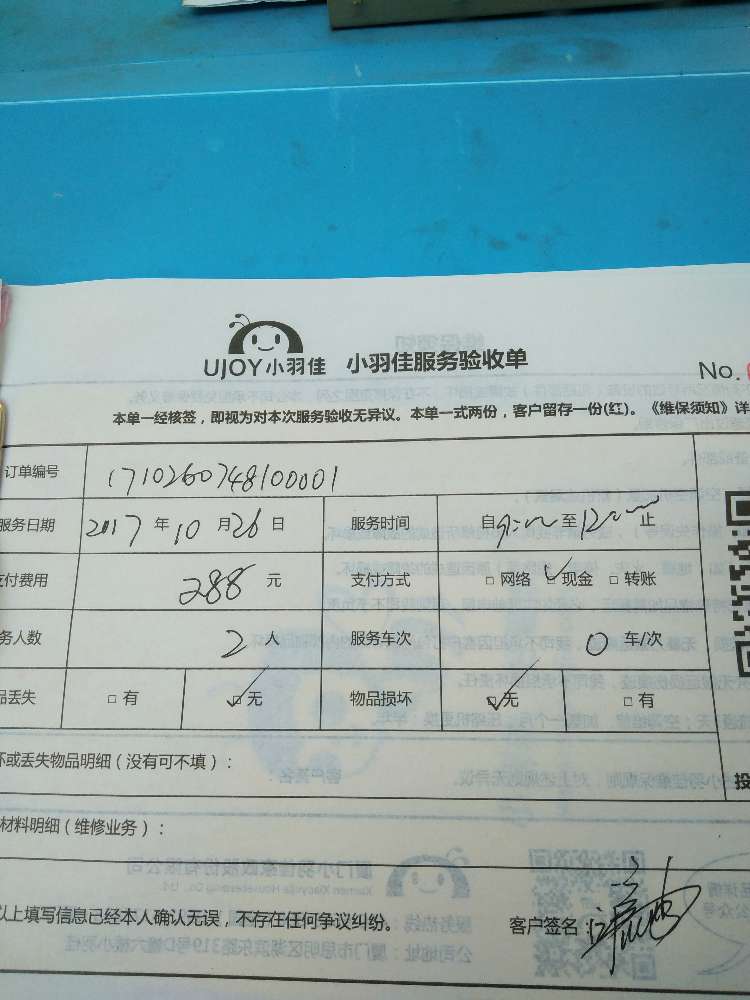 UJOY小羽佳 小羽佳服务验收单
No.
本单一经核签，即视为对本次服务验收无异议。本单一式两份，客户留存一份(红)。《维保须知》详
订单编号 1710260748100001
服务日期 2017 年 10 月 26 日 服务时间 自 9:00 至 12:00 止
支付费用 288 元 支付方式 □ 网络 □ 现金 □ 转账
务人数 2 人 服务车次 0 车/次
品丢失 □ 有 □ 无 物品损坏 □ 无 □ 有
坏或丢失物品明细（没有可不填）：
材料明细（维修业务）：
以上填写信息已经本人确认无误，不存在任何争议纠纷。 客户签名：